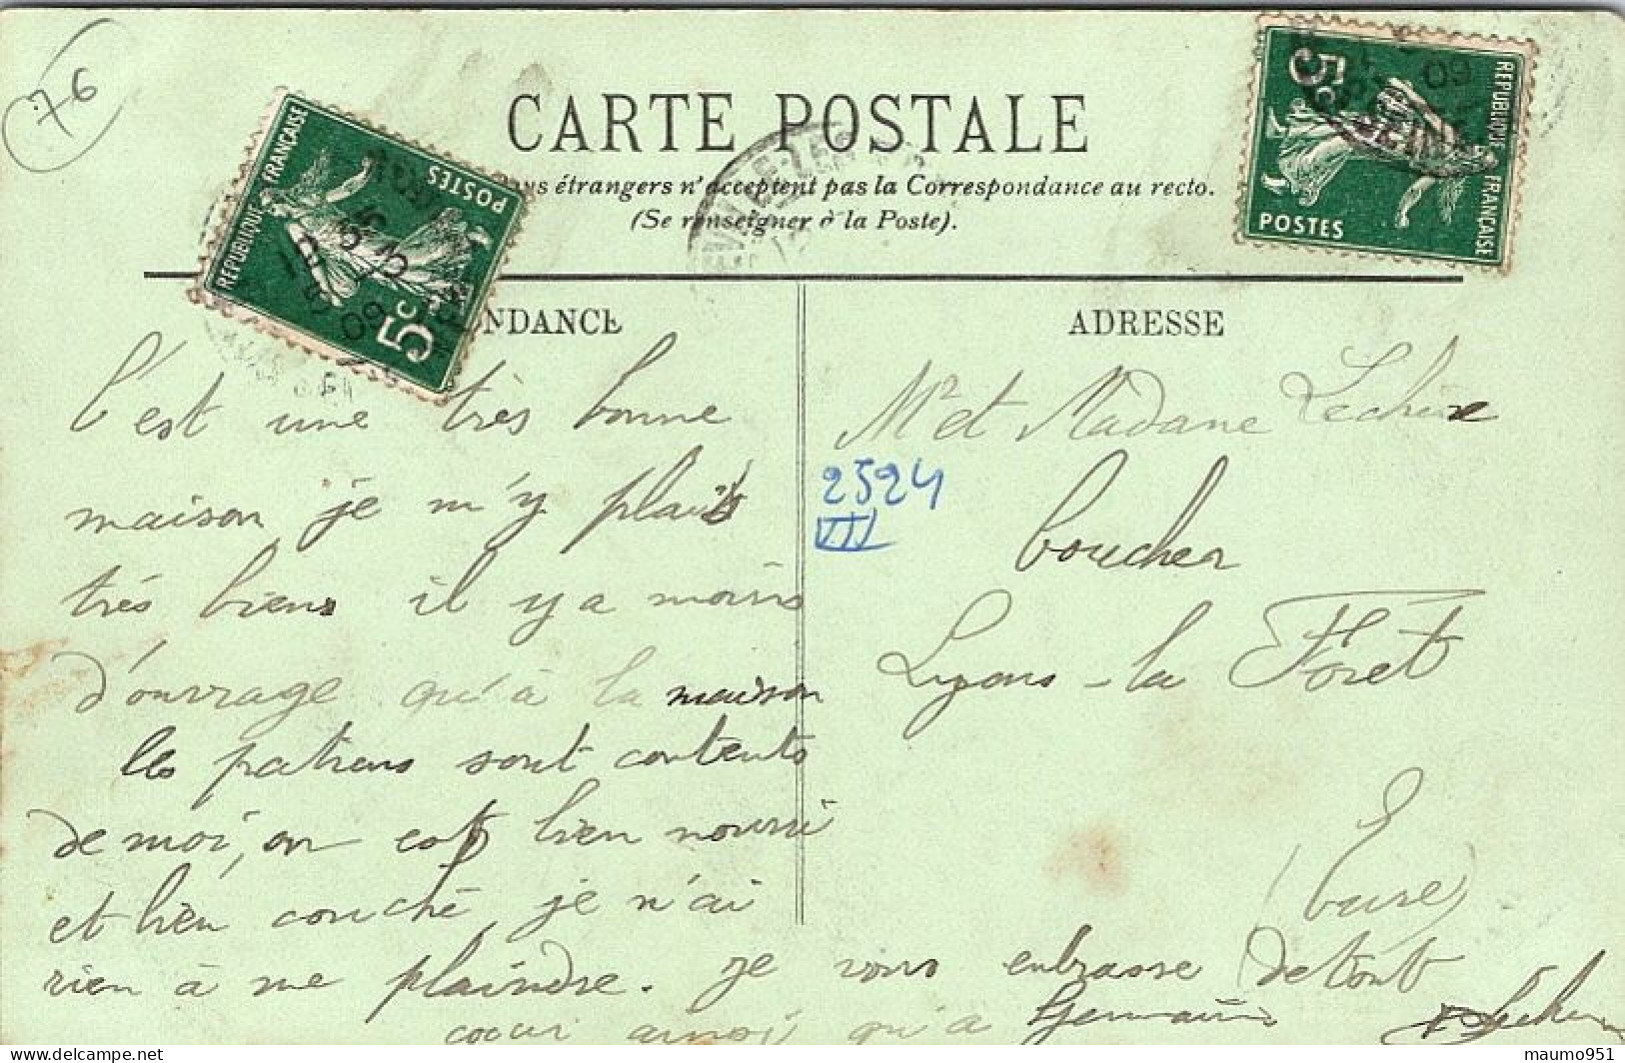 76
CARTE POSTALE
étrangers n'acceptent pas la Correspondance au recto.
(Se renseigner à la Poste).
RÉPUBLIQUE FRANÇAISE
POSTES
5c
09
RÉPUBLIQUE FRANÇAISE
POSTES
5c
09
SEINE
NDANCE
ADRESSE
C'est une très bonne
maison je m'y plais
très biens il y a moins
d'ouvrage qu'à la maison
les patrons sont contents
de moi, on est bien nourri
et bien couché je n'ai
rien à me plaindre. Je vous embrasse de tout
coeur ainsi qu'a Germaine
Mr et Madame
2524
VII
boucher
Lyons-la Forêt
(Eure)
maumo951